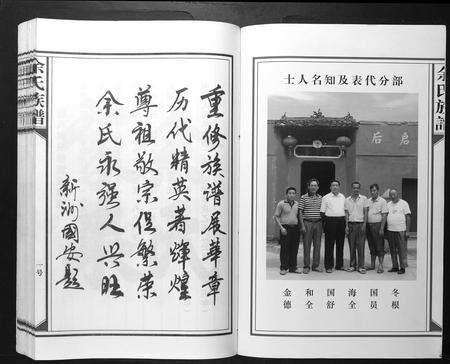 余氏族譜
部分代表及知名人士
启后
冬根
国员
海全
国舒
和全
金德
重修族谱展華章
历代精英著輝煌
尊祖敬宗促繁荣
余氏永强人兴旺
新洲国安题
余氏族譜
一号